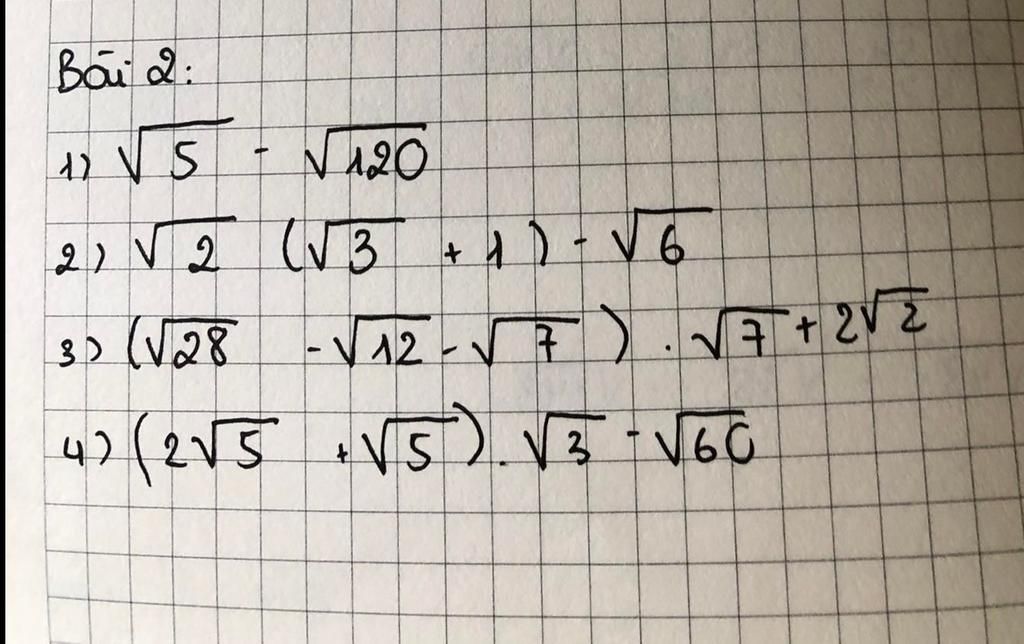 Bài 2:
1) √5 - √120
2) √2 (√3 + 1) - √6
3) (√28 - √12 - √7) . √7 + 2√2
4) (2√5 + √5) . √3 - √60